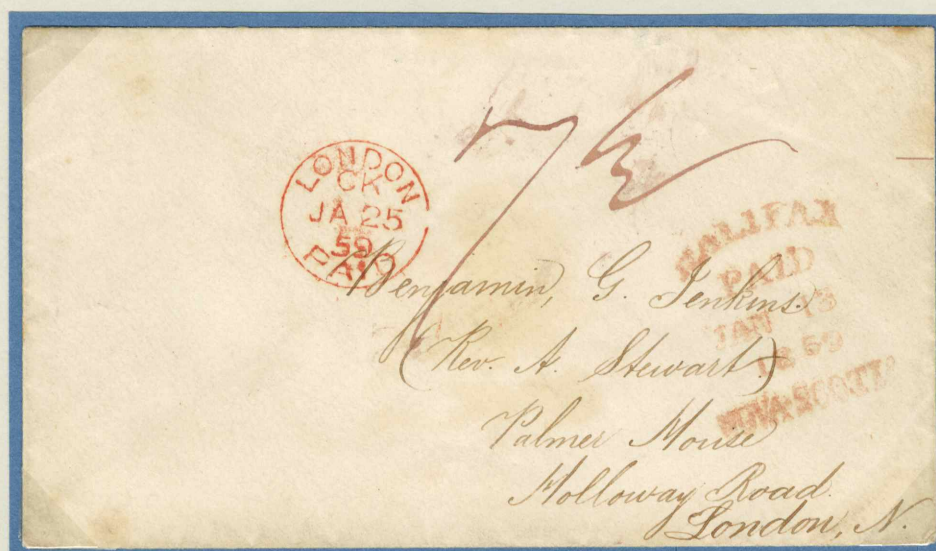 LONDON
CK
JA 25
59
PAID
7½
HALIFAX
PAID
JAN 13
1859
NOVA SCOTIA
Benjamin, G. Jenkins.
(Rev. A. Stewart)
Palmer House
Holloway Road.
London, N.